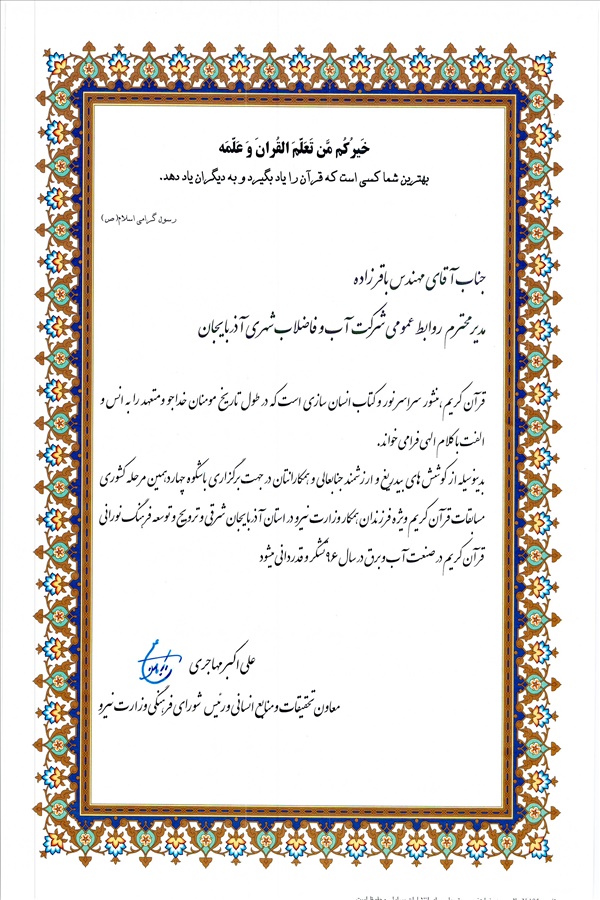 خَیرُکُم مَّن تَعَلَّمَ القُرانَ وَ عَلَّمَه
بهترین شما کسی است که قرآن را یاد بگیرد و به دیگران یاد دهد.
رسول گرامی اسلام(ص)
جناب آقای مهندس باقرزاده
مدیر محترم روابط عمومی شرکت آب و فاضلاب شهری آذربایجان
قرآن کریم، منشور سراسر نور و کتاب انسان سازی است که در طول تاریخ مومنان خداجو و متعهد را به انس و
الفت با کلام الهی فرا می خواند.
بدینوسیله از کوشش های بیدریغ و ارزشمند جنابعالی و همکارانتان در جهت برگزاری باشکوه چهاردهمین مرحله کشوری
مسابقات قرآن کریم ویژه فرزندان همکار وزارت نیرو در استان آذربایجان شرقی و ترویج و توسعه فرهنگ نورانی
قرآن کریم در صنعت آب و برق در سال ۹۶ تشکر و قدردانی میشود
علی اکبر مهاجری
معاون تحقیقات و منابع انسانی و رئیس شورای فرهنگی وزارت نیرو